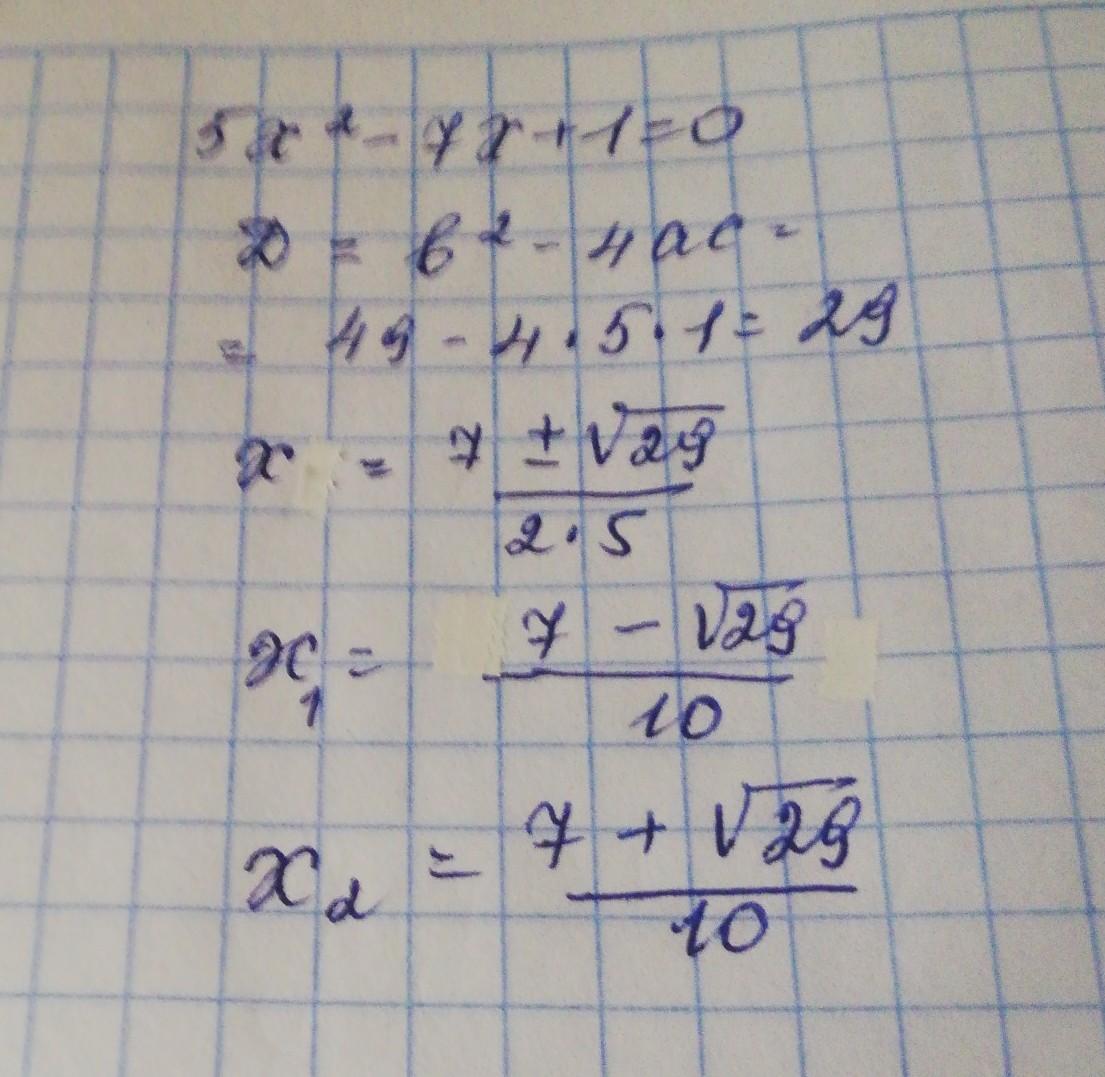 5x² - 7x + 1 = 0
D = b² - 4ac =
= 49 - 4 · 5 · 1 = 29
x = (7 ± √29) / (2 · 5)
x₁ = (7 - √29) / 10
x₂ = (7 + √29) / 10